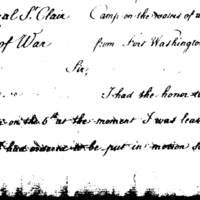 eal St. Clair Camp on the waters of
of War from Fort Washington
Sir,
I had the honor
on the 6th at the moment I was leav
I had to be put in motion